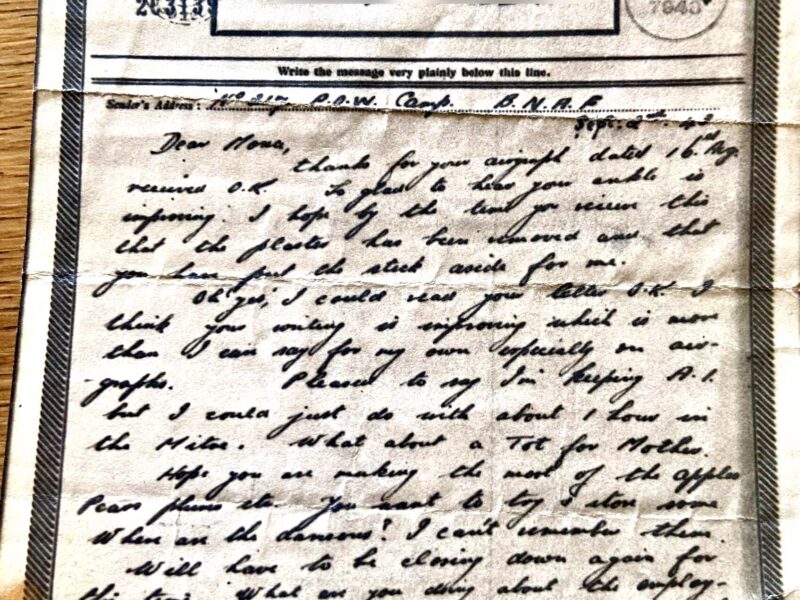 203139
7640
Write the message very plainly below this line.
Sender's Address: No 217 P.O.W. Camp. B.N.A.F
Sept. 2nd 43
Dear Mona,
thanks for your airgraph dated 16th Aug.
received O.K. So glad to hear your ankle is
improving. I hope by the time you receive this
that the plaster has been removed and that
you have put the stick aside for me.
Oh yes, I could read your letter O.K. I
think your writing is improving which is more
than I can say for my own especially on air-
graphs. Pleased to say I'm keeping A.1.
but I could just do with about 1 hour in
the Mitre. What about a Tot for Mother.
Hope you are making the most of the apples
Pears plums etc. You want to try & store some
Where are the damsons? I can't remember them.
Will have to be closing down again for
this time. What are you doing about the employ-